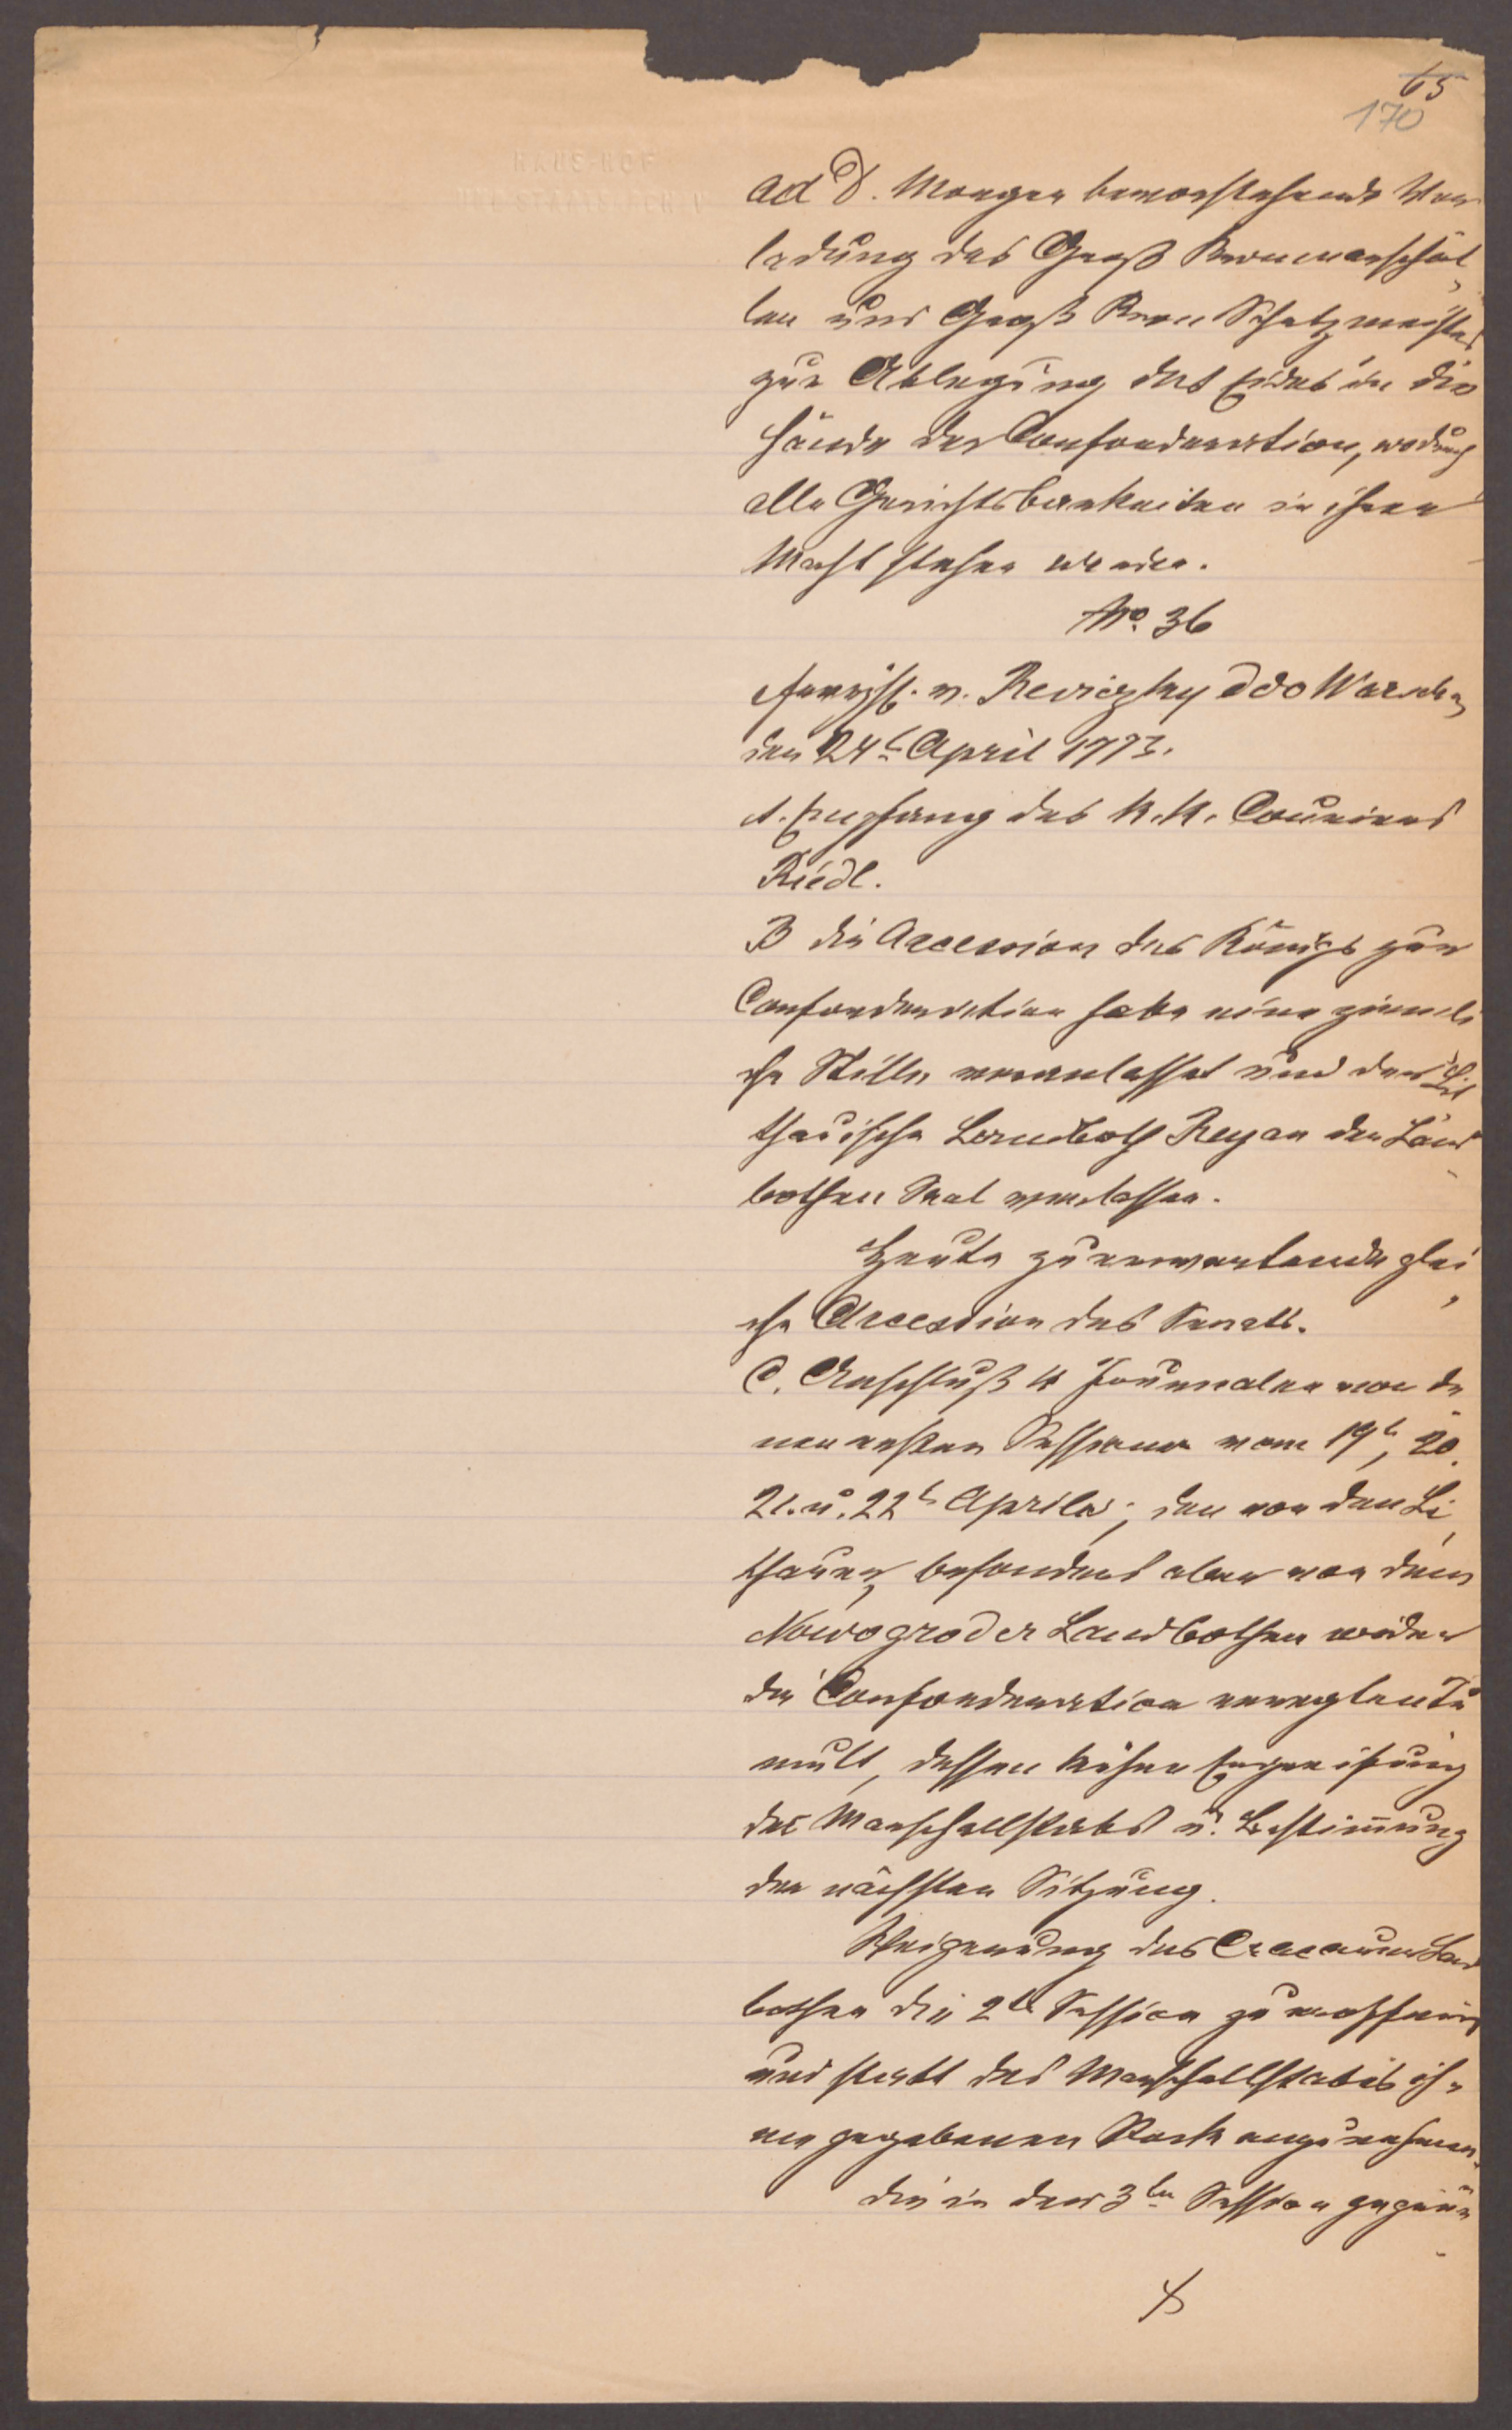 65
170
HAUS-HOF
UND STAATSARCHIV
ad D. Morgen bevorstehende Vor
ladung des Groß Kronmarschal
len und Groß Kron Schatzmeisters
zur Ablegung des Eides in die
Hände der Confoederation, wodurch
alle Gerichtsbarkeiten in ihrer
Macht stehen werden.
No. 36
v. Reviczky ddo Warschau
den 24t April 1773.
A. Empfang des K.K. Couriers
Riedl.
B die Accession des Königs zur
Confoederation habe eine ziemli
che Stille veranlasset und der Lit
thauische Landboth Reyan den Land
bothen Saal verlassen.
Heute zu erwartende glei
che Accession des Senats.
C. Anschluß 4 Journalen von de
nen ersten Sessionen vom 19t, 20.
21. u. 22t Aprils; den von den Li
thauern, besonders aber von dem
Nowogroder Landbothen wider
die Confoederation erregten Tu
mult, dessen kühne Ergreifung
des Marschallstabs u. Bestimmung
der nächsten Sitzung.
Weigerung des Cracauer Land
bothen die 2te Session zu eröffnen
und statt des Marschallstabes ih
me gegebenen Stock anzunehmen.
die in der 3ten Session